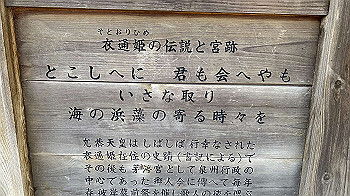 そとおりひめ
衣通姫の伝説と宮跡
とこしへに 君も会へやも
いさな取り
海の浜藻の寄る時々を
允恭天皇はしばしば行幸なされた
衣通姫在住の史蹟(書記による)で
その後も茅渟宮として泉州行政の
中心であった 郷人会に傳へて毎年